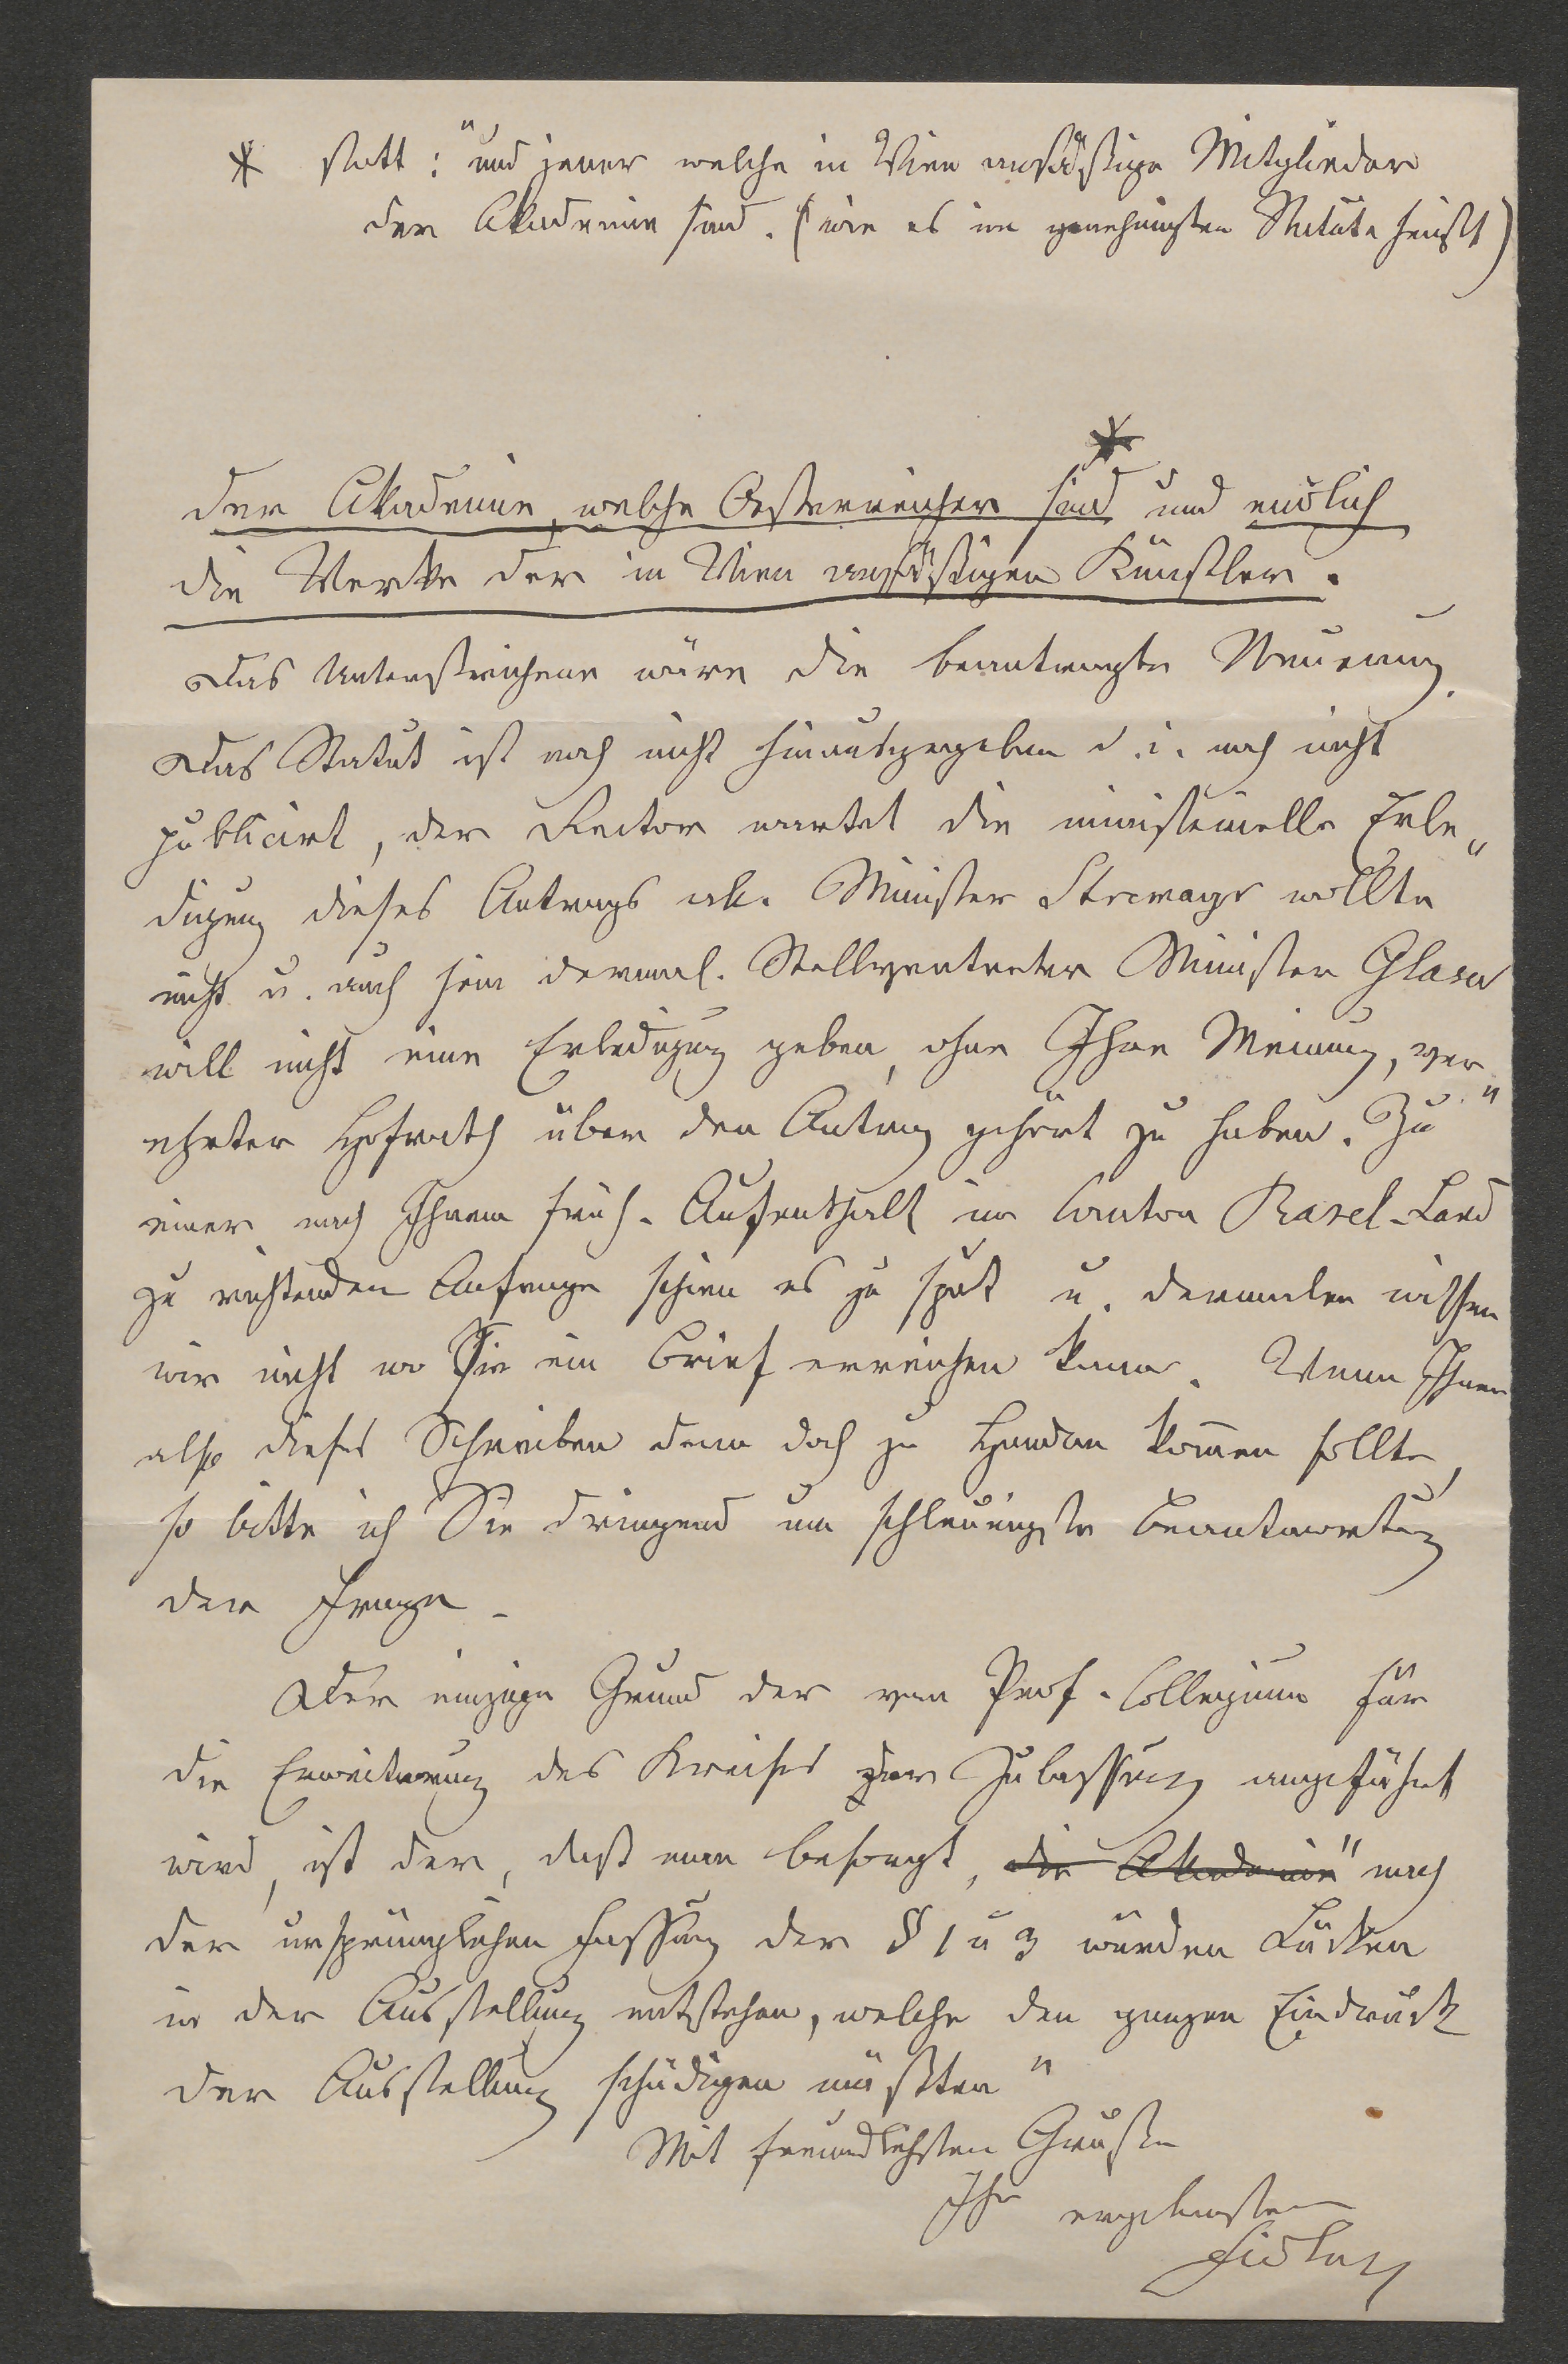 * statt: "und jener welche in Wien ansäßige Mitglieder
der Akademie sind. (wie es im genehmigten Statute heißt)
*
der Akademie, welche Oesterreicher sind und endlich
die Werke der in Wien ansäßigen Künstler.
Das Unterstrichene wäre die beantragte Neuerung.
Das Statut ist noch nicht hinausgegeben d. i. noch nicht
publicirt, der Rector wartet die ministerielle Erle„
digung dieses Antrags ab. Minister Stremayr wollte
nicht u. auch sein dermal. Stellvertreter Minister Glaser
will nicht eine Erledigung geben, ohne Ihre Meinung, ver„
ehrter Hofrath über den Antrag gehört zu haben. Zu
einer nach Ihrem früh. Aufenthalt im Canton Basel-Land
zu richtenden Anfrage schien es zu spät u. dermalen wissen
wir nicht wo Sie ein Brief erreichen kann. Wenn Ihnen
also dieses Schreiben denn doch zu Handen kommen sollte,
so bitte ich Sie dringend um schleunigste Beantwortung
der Frage.
Der einzige Grund der vom Prof. Collegium für
die Erweiterung des Kreises zur Zulassung angeführt
wird, ist der, daß man besorgt, die Akademie" nach
der ursprünglichen Fassung der § 1 u 3 würden Lücken
in der Ausstellung entstehen, welche den ganzen Eindruck
der Ausstellung schädigen müßten"
Mit freundlichsten Grüßen
Ihr ergebenster
Fidler